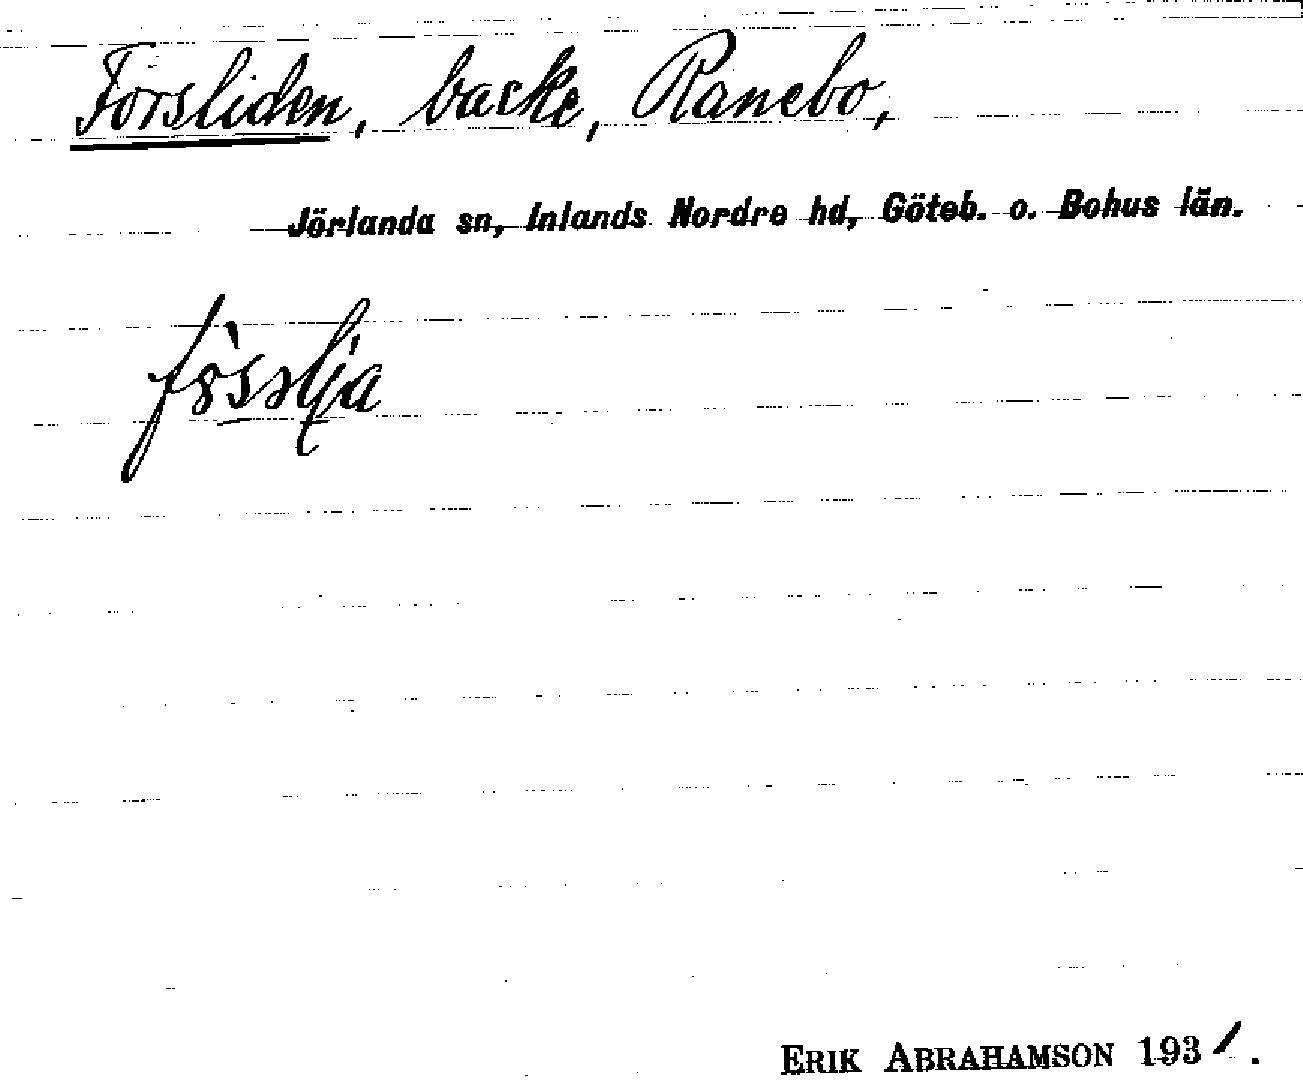 Forsliden, backe, Ranebo,
Jörlanda sn, Inlands Nordre hd, Göteb. o. Bohus län.
ERIK ABRAHAMSON 1931.